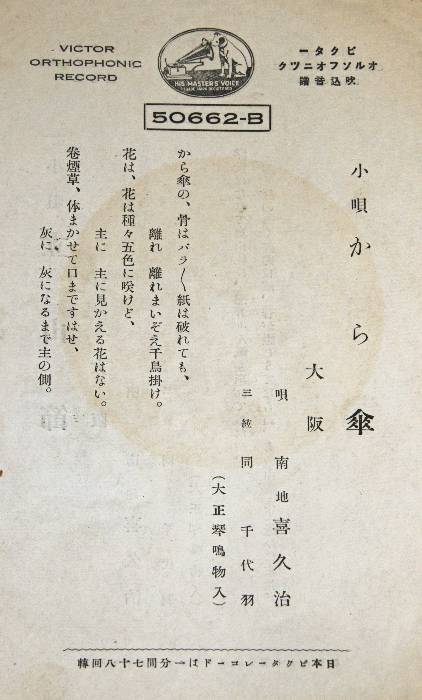 VICTOR
ORTHOPHONIC
RECORD
HIS MASTER'S VOICE
ビクター
オルソフオニツク
吹込音譜
50662-B
小唄 から傘
大阪
唄 南地 喜久治
三絃 同 千代羽
(大正琴鳴物入)
から傘の、骨はバラ〱紙は破れても、
離れ 離れまいぞえ千鳥掛け。
花は、花は種々五色に咲けど、
主に 主に見かえる花はない。
卷煙草、体まかせて口まですはせ、
灰に 灰になるまで主の側。
日本ビクターレコードは一分間七十八回轉